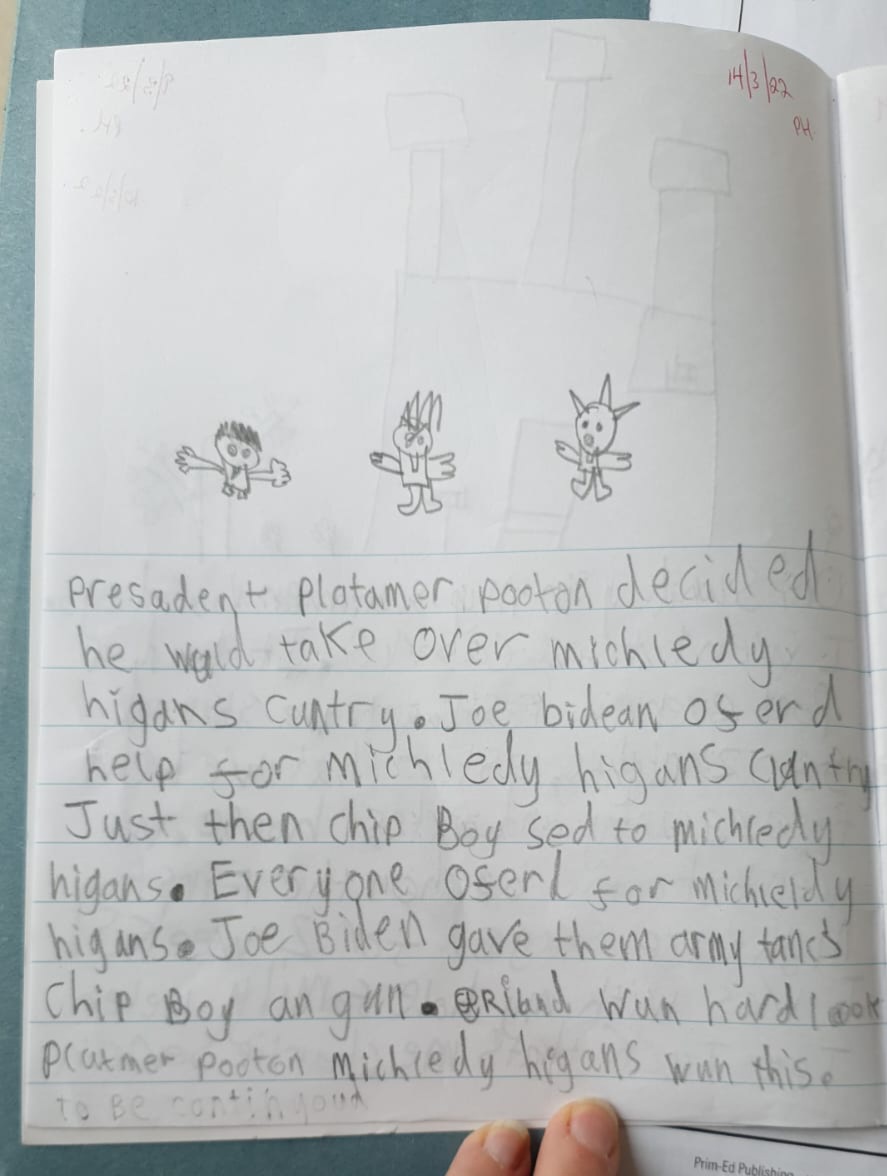 14/3/22
PH
presadent platamer pooton decided
he wuld take over michledy
higans cuntry. Joe bidean oferd
help for michledy higans cuntry
Just then chip Boy sed to michledy
higans. Every one oferd for michieldy
higans. Joe Biden gave them army tancs
Chip Boy an gun. wun hard look
Plutmer pooton michledy higans wun this.
To Be continyoud
Prim-Ed Publishing